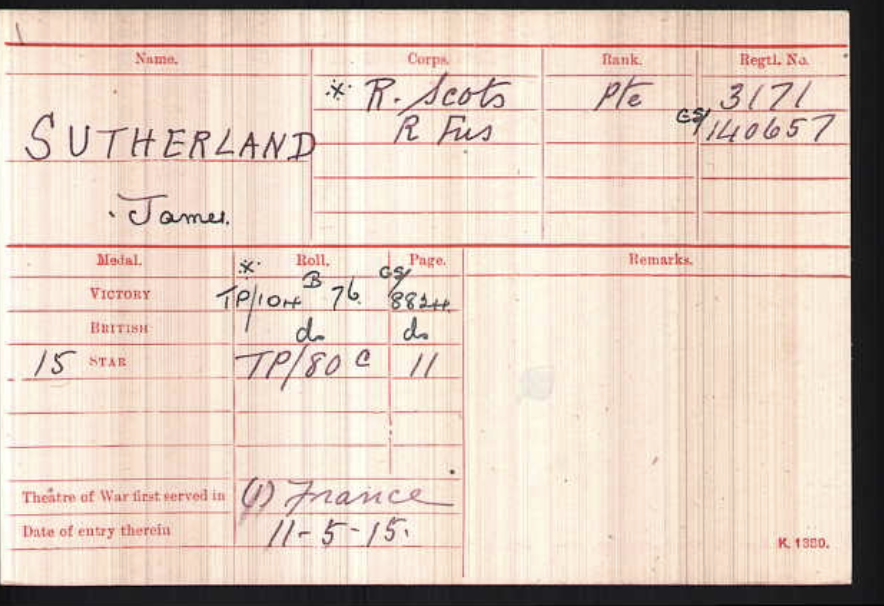 Name. Corps. Rank. Regtl. No.
* R. Scots Pte 3171
R Fus GS/140657
SUTHERLAND
James.
Medal. * Roll. Page. Remarks.
VICTORY TP/104 B 76 GS/8824
BRITISH do do
15 STAR TP/80 C 11
Theatre of War first served in (1) France
Date of entry therein 11-5-15.
K. 1380.